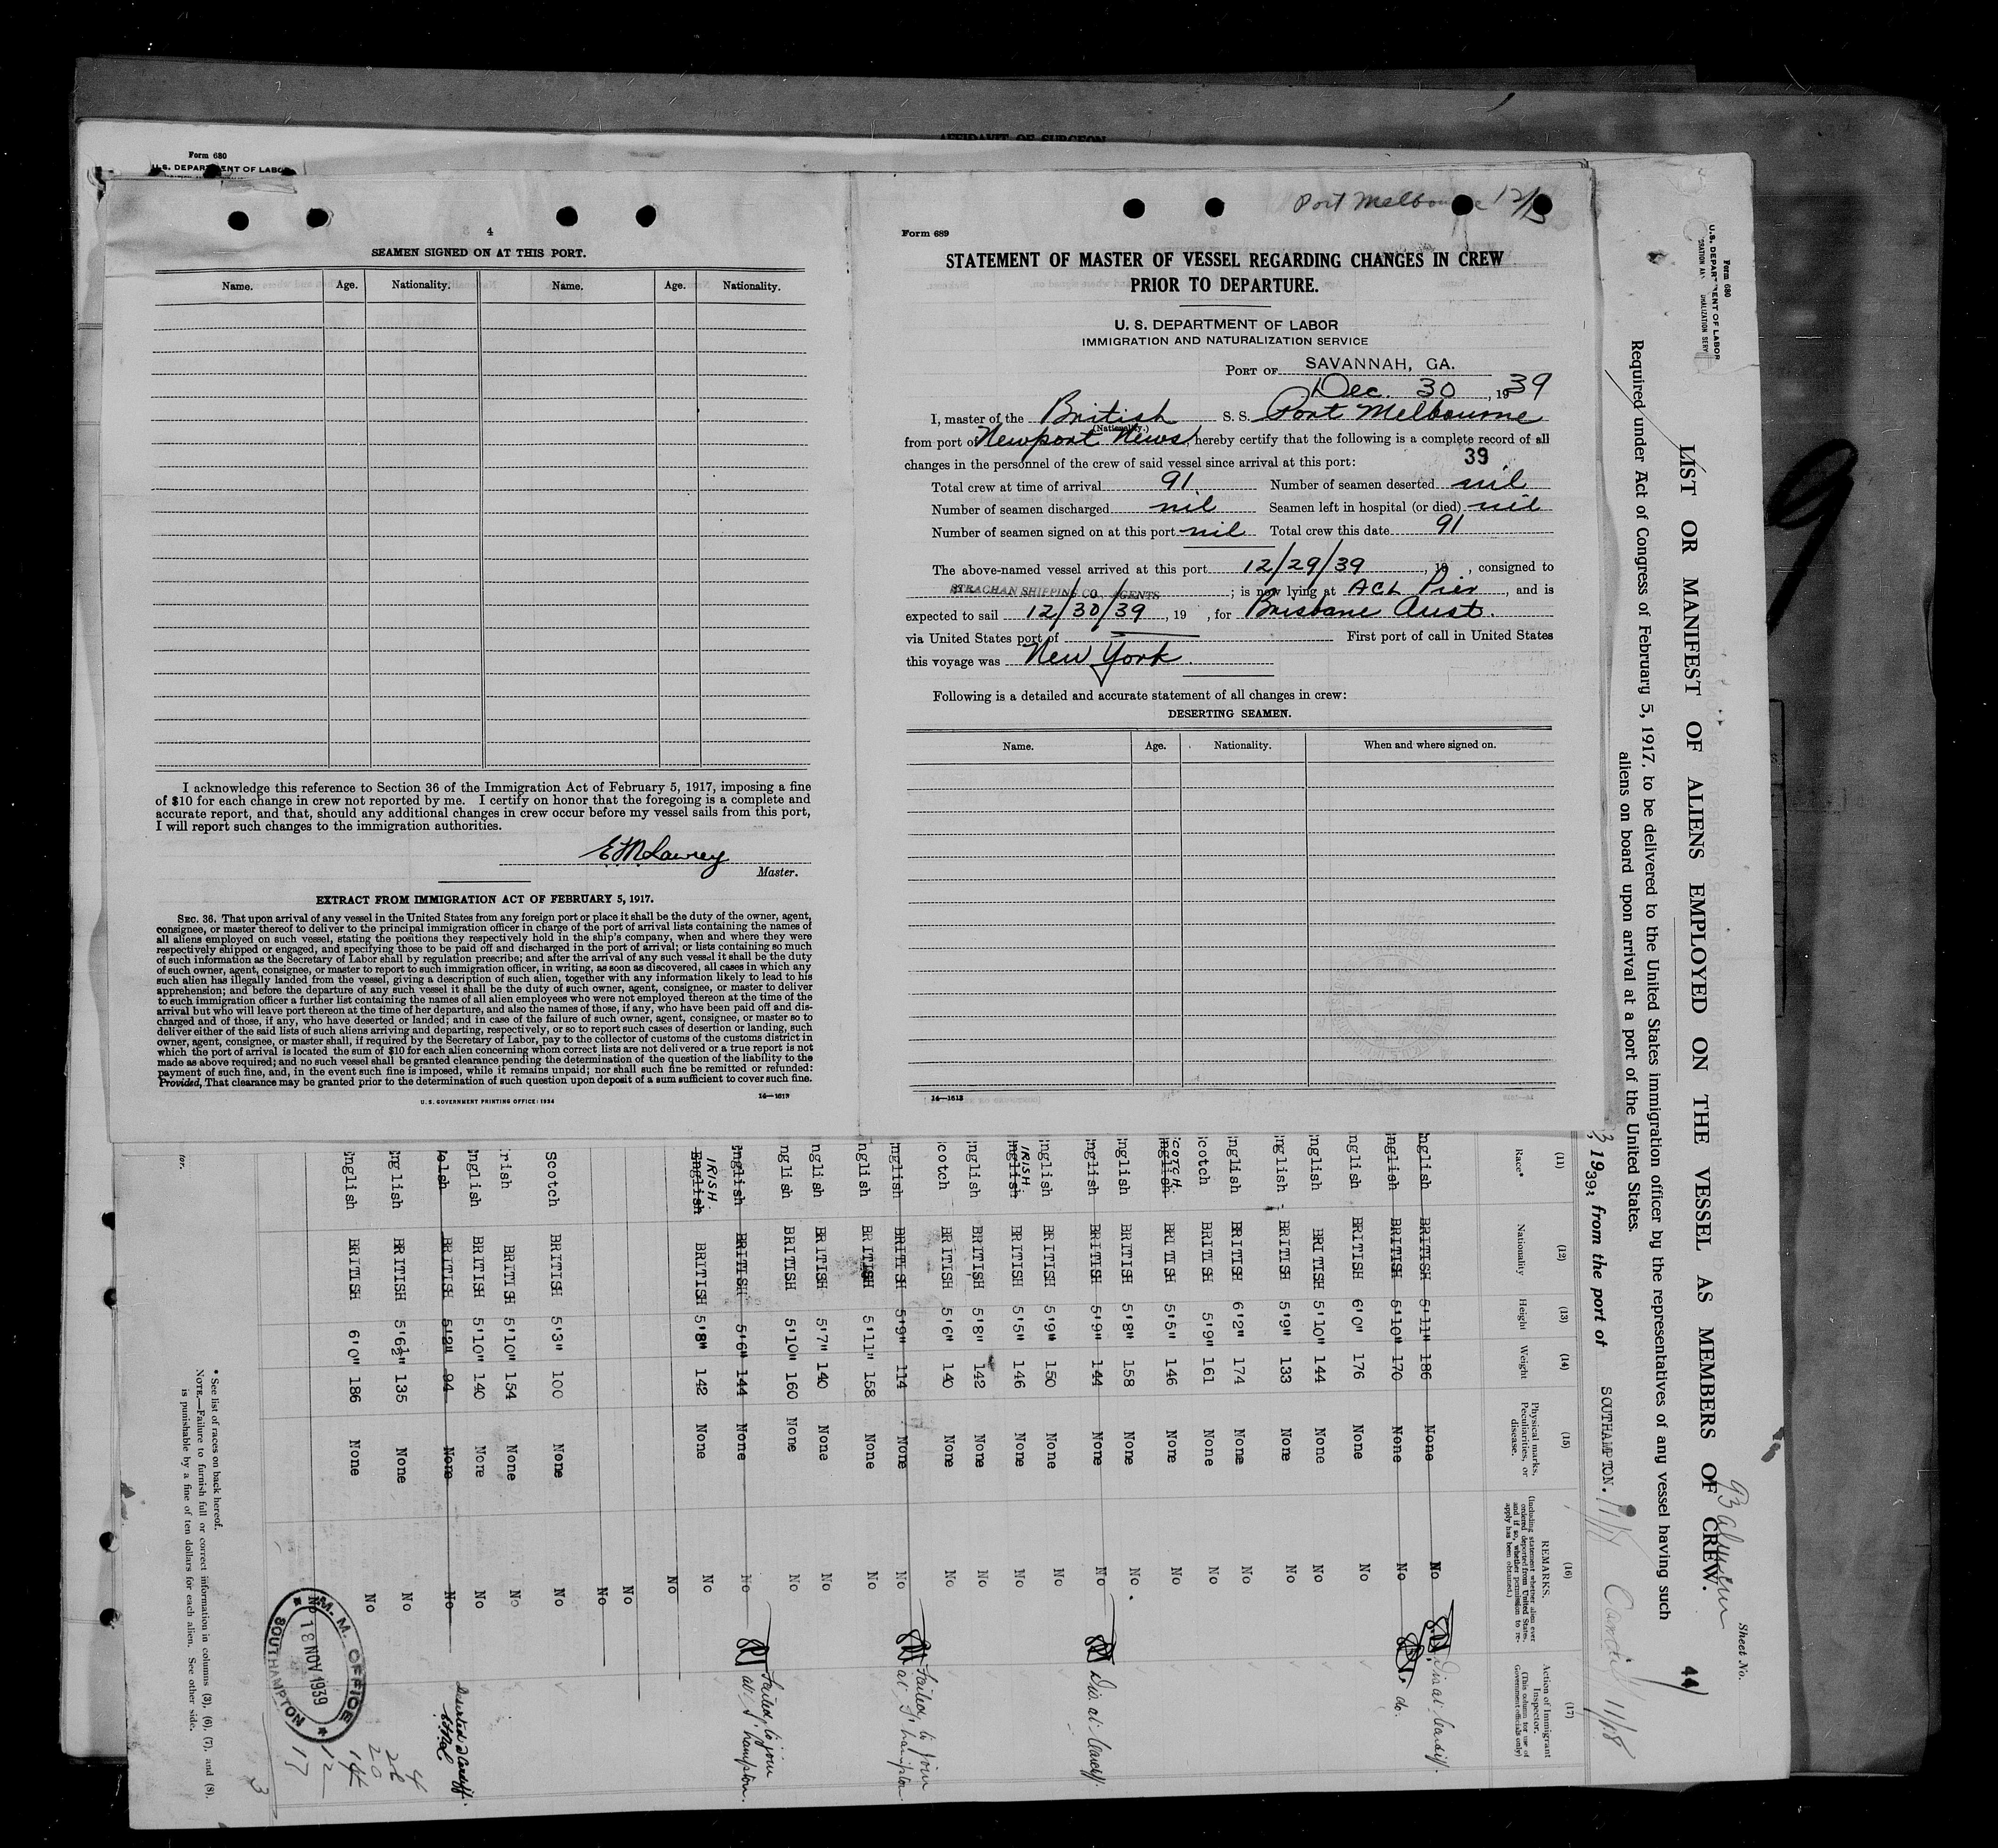 AFFIDAVIT OF SURGEON
Form 680
U. S. DEPARTMENT OF LABOR
4
SEAMEN SIGNED ON AT THIS PORT.
Name. Age. Nationality. Name. Age. Nationality.
I acknowledge this reference to Section 36 of the Immigration Act of February 5, 1917, imposing a fine
of $10 for each change in crew not reported by me. I certify on honor that the foregoing is a complete and
accurate report, and that, should any additional changes in crew occur before my vessel sails from this port,
I will report such changes to the immigration authorities.
Master.
EXTRACT FROM IMMIGRATION ACT OF FEBRUARY 5, 1917.
SEC. 36. That upon arrival of any vessel in the United States from any foreign port or place it shall be the duty of the owner, agent,
consignee, or master thereof to deliver to the principal immigration officer in charge of the port of arrival lists containing the names of
all aliens employed on such vessel, stating the positions they respectively hold in the ship's company, when and where they were
respectively shipped or engaged, and specifying those to be paid off and discharged in the port of arrival; or lists containing so much
of such information as the Secretary of Labor shall by regulation prescribe; and after the arrival of any such vessel it shall be the duty
of such owner, agent, consignee, or master to report to such immigration officer, in writing, as soon as discovered, all cases in which any
such alien has illegally landed from the vessel, giving a description of such alien, together with any information likely to lead to his
apprehension; and before the departure of any such vessel it shall be the duty of such owner, agent, consignee, or master to deliver
to such immigration officer a further list containing the names of all alien employees who were not employed thereon at the time of the
arrival but who will leave port thereon at the time of her departure, and also the names of those, if any, who have been paid off and dis-
charged and of those, if any, who have deserted or landed; and in case of the failure of such owner, agent, consignee, or master so to
deliver either of the said lists of such aliens arriving and departing, respectively, or so to report such cases of desertion or landing, such
owner, agent, consignee, or master shall, if required by the Secretary of Labor, pay to the collector of customs of the customs district in
which the port of arrival is located the sum of $10 for each alien concerning whom correct lists are not delivered or a true report is not
made as above required; and no such vessel shall be granted clearance pending the determination of the question of the liability to the
payment of such fine, and, in the event such fine is imposed, while it remains unpaid; nor shall such fine be remitted or refunded:
Provided, That clearance may be granted prior to the determination of such question upon deposit of a sum sufficient to cover such fine.
U. S. GOVERNMENT PRINTING OFFICE: 1934 14—1613
Port Melbourne
Form 689
STATEMENT OF MASTER OF VESSEL REGARDING CHANGES IN CREW
PRIOR TO DEPARTURE.
U. S. DEPARTMENT OF LABOR
IMMIGRATION AND NATURALIZATION SERVICE
PORT OF SAVANNAH, GA.
Dec. 30, 1939
I, master of the British S. S. Port Melbourne
(Nationality.)
from port of Newport News, hereby certify that the following is a complete record of all
changes in the personnel of the crew of said vessel since arrival at this port: 39
Total crew at time of arrival 91. Number of seamen deserted nil
Number of seamen discharged nil Seamen left in hospital (or died) nil
Number of seamen signed on at this port nil Total crew this date 91
The above-named vessel arrived at this port 12/29/39, 19 , consigned to
STRACHAN SHIPPING CO., AGENTS ; is now lying at ACL Pier, and is
expected to sail 12/30/39, 19 , for Brisbane Aust.
via United States port of First port of call in United States
this voyage was New York.
Following is a detailed and accurate statement of all changes in crew:
DESERTING SEAMEN.
Name. Age. Nationality. When and where signed on.
14—1613
Form 680
U. S. DEPARTMENT OF LABOR
Sheet No. 44
LIST OR MANIFEST OF ALIENS EMPLOYED ON THE VESSEL AS MEMBERS OF CREW.
Required under Act of Congress of February 5, 1917, to be delivered to the United States immigration officer by the representatives of any vessel having such
aliens on board upon arrival at a port of the United States.
3, 1939, from the port of SOUTHAMPTON.
(11) (12) (13) (14) (15) (16) (17)
Race* Nationality Height Weight Physical marks, Peculiarities, or disease. REMARKS. (Including statement whether alien ever ordered deported from United States, and if so, whether permission to re-apply has been obtained.) Action of Immigrant Inspector. (This column for use of Government officials only)
nglish BRITISH 5'11" 186 None No Dis at Cardiff.
nglish BRITISH 5'10" 170 None No do.
nglish BRITISH 6'0" 176 None No
nglish BRITISH 5'10" 144 None No
nglish BRITISH 5'9" 133 None No
nglish BRITISH 6'2" 174 None No
cotch BRITISH 5'9" 161 None No
COTCH. nglish BRITISH 5'5" 146 None No
nglish BRITISH 5'8" 158 None No.
nglish BRITISH 5'9" 144 None No Dis. at Cardiff.
nglish BRITISH 5'9" 150 None No
IRISH. nglish BRITISH 5'5" 146 None No
nglish BRITISH 5'8" 142 None No
cotch BRITISH 5'6" 140 None No
nglish BRITISH 5'9" 114 None No Failed to join at S'hampton.
nglish BRITISH 5'11" 158 None No
nglish BRITISH 5'7" 140 None No
nglish BRITISH 5'10" 160 None No
nglish BRITISH 5'6" 144 None No Failed to join at S'hampton.
IRISH. English BRITISH 5'8" 142 None No
No
No
No
Scotch BRITISH 5'3" 100 None No
rish BRITISH 5'10" 154 None No
nglish BRITISH 5'10" 140 None No
elsh BRITISH 5'2" 94 None No Deserted at Cardiff.
nglish BRITISH 5'6½" 135 None No
nglish BRITISH 6'0" 186 None No
M. M. OFFICE
18 NOV 1939
SOUTHAMPTON
* See list of races on back hereof.
NOTE.—Failure to furnish full or correct information in columns (3), (6), (7), and (8),
is punishable by a fine of ten dollars for each alien. See other side.
tor.
3
9